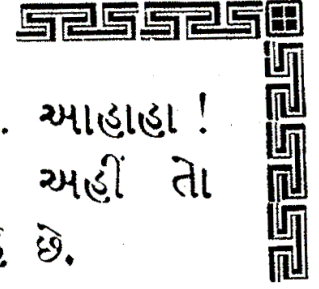 . આહાહા !
અહીં તો
છે.